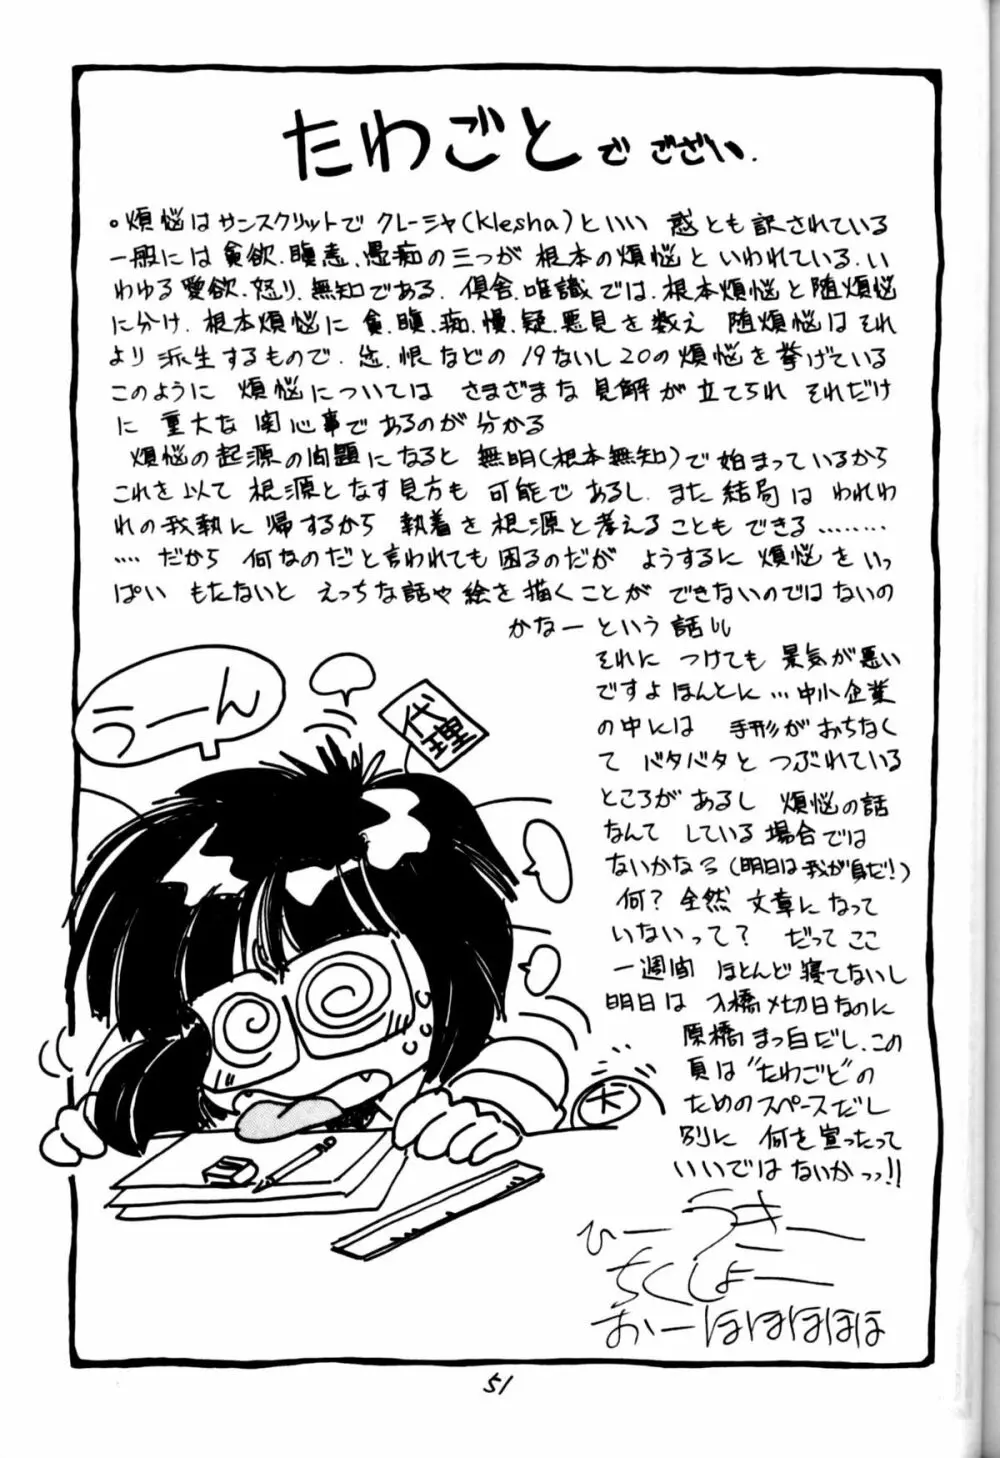 たわごとでござい.
。煩悩はサンスクリットでクレーシャ(Klesha)といい 惑とも訳されている
一般には貪欲.瞋恚.愚痴の三つが 根本の煩悩といわれている.い
わゆる愛欲.怒り.無知である. 倶舎.唯識では.根本煩悩と随煩悩
に分け.根本煩悩に 貪.瞋.痴.慢.疑.悪見を数え 随煩悩はそれ
より派生するもので. 恨などの19ないし20の煩悩を挙げている
このように 煩悩については さまざまな見解が立てられ それだけ
に 重大な関心事であるのが分かる
煩悩の起源の問題になると 無明(根本無知)で始まっているから
これを以て 根源となす見方も 可能であるし.また結局は われわ
れの我執に 帰するから 執着を根源と考えることもできる………
…. だから 何なのだと言われても困るのだが ようするに 煩悩をいっ
ぱい もたないと えっちな話や絵を描くことが できないのではないの
かなー という話
それに つけても 景気が悪い
ですよほんとに…中小企業
の中には 手形がおちなく
て バタバタと つぶれている
ところが あるし 煩悩の話
なんて している場合では
ないかなろ(明日は我が身だ!)
何? 全然 文章になって
いないって? だって ここ
一週間 ほとんど寝てないし
明日は 入橋〆切日なのに
原橋まっ白だし.この
頁は"たわごと"の
ためのスペースだし
別に 何を宣ったって
いいでは ないかっっ!!
ひーうきー
ちくしょー
おーほほほほほ
うーん
代理
大
51